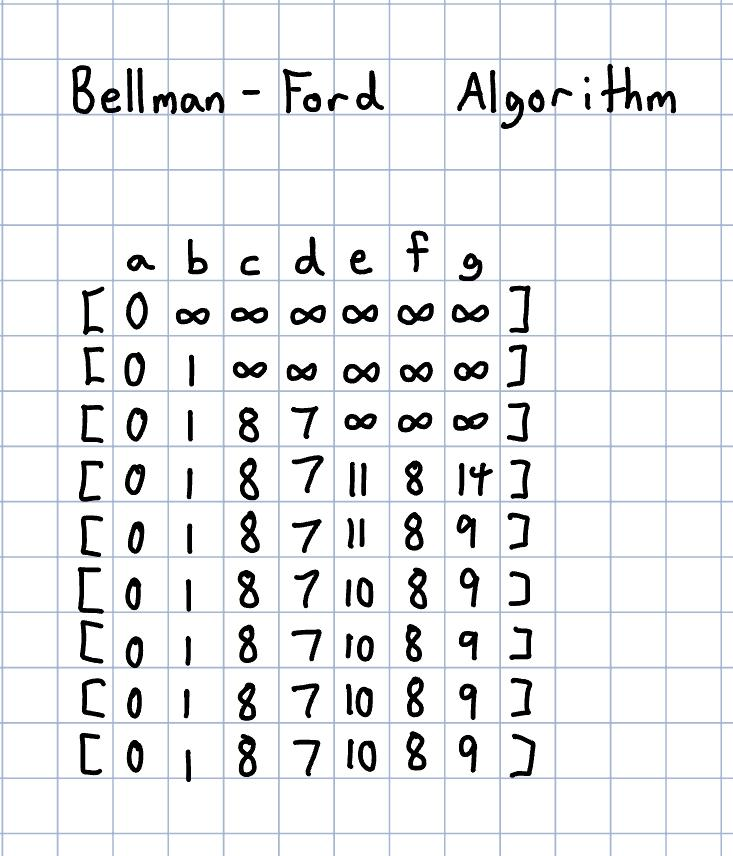 Bellman - Ford Algorithm
a b c d e f g
[ 0 ∞ ∞ ∞ ∞ ∞ ∞ ]
[ 0 1 ∞ ∞ ∞ ∞ ∞ ]
[ 0 1 8 7 ∞ ∞ ∞ ]
[ 0 1 8 7 11 8 14 ]
[ 0 1 8 7 11 8 9 ]
[ 0 1 8 7 10 8 9 ]
[ 0 1 8 7 10 8 9 ]
[ 0 1 8 7 10 8 9 ]
[ 0 1 8 7 10 8 9 ]